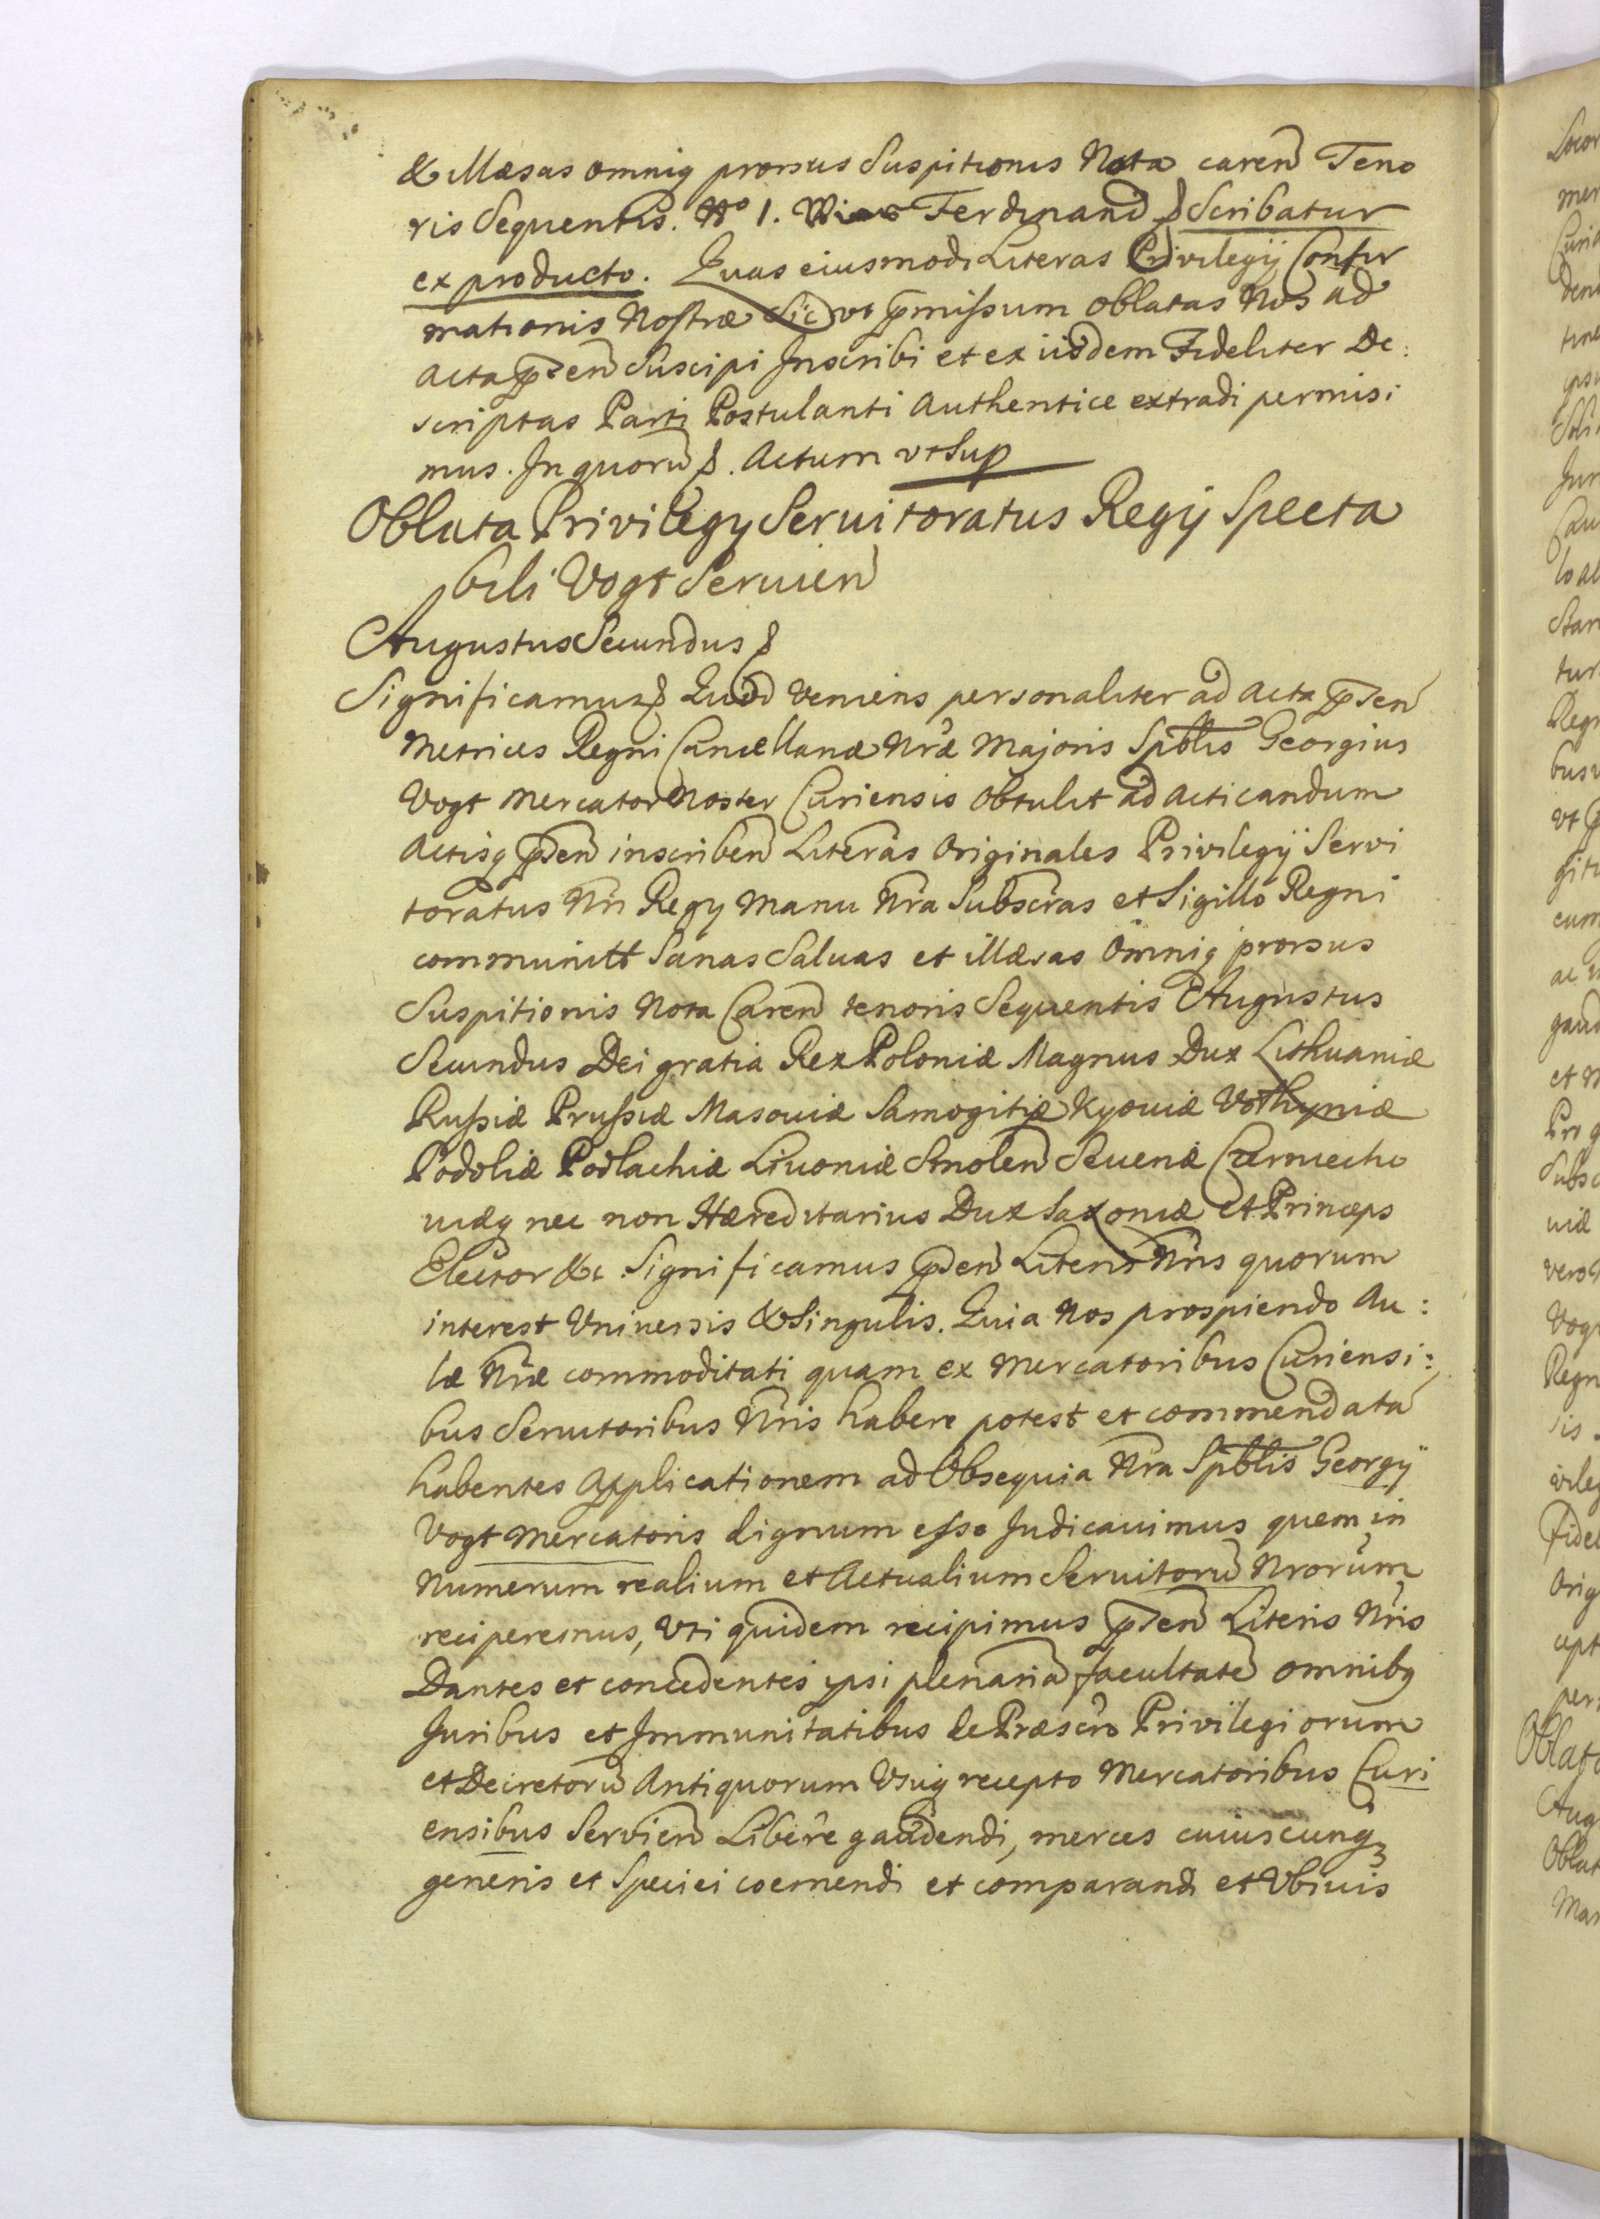 & illæsas omniq prorsus Suspitionis Nota caren Teno
ris Sequentis. No 1. Ferdinand Scribatur
ex producto. Quas eiusmodi Literas Privilegij Confir
mationis Nostræ Sic vt pmissum oblatas Nos ad
Acta psen Suscipi Inscribi et ex iisdem Fideliter De:
scriptas Parti Postulanti Authentice extradi permisi:
mus. In quoru &. Actum vt Sup
Oblata Privilegy Seruitoratus Regij Specta
bili Vogt Seruien
Augustus Secundus &
Significamus & Quod Veniens personaliter ad Acta psen
Metrices Regni Cancellariæ Nræ Majoris Spblis Georgius
Vogt Mercator Noster Curiensis obtulit ad Acticandum
Actisq psen inscriben Literas Originales Privilegij Servi
toratus Nri Regy Manu Nra Subscras et Sigillo Regni
communitt Sanas Saluas et illæsas Omniq prorsus
Suspitionis Nota Caren tenoris Sequentis Augustus
Secundus Dei gratia Rex Poloniæ Magnus Dux Lithuaniæ
Russiæ Prussiæ Masouiæ Samogitiæ Kyouiæ Volhyniæ
Podoliæ Podlachiæ Liuoniæ Smolen Seueriæ Czerniecho
uiæq nec non Hæreditarius Dux Saxoniæ et Princeps
Elector &c. Significamus psen Literis Nris quorum
interest Vniuersis & Singulis. Quia Nos prospiciendo Au:
læ Nræ commoditati quam ex Mercatoribus Curiensi:
bus Seruitoribus Nris habere potest et commendata
habentes Applicationem ad Obsequia Nra Spblis Georgij
Vogt Mercatoris dignum esse Judicauimus quem in
Numerum realium et Actualium Seruitoru Nrorum
reciperemus, Vti quidem recipimus psen Literis Nris
Dantes et concedentes ipsi plenaria facultate omnibq
Juribus et Immunitatibus de Præscro Privilegiorum
et Decretoru Antiquorum Vsuq recepto Mercatoribus Curi
ensibus Servien Libere gaudendi, merces cuiuscunq
generis et Speciei coemendi et comparandi et Vbiuis